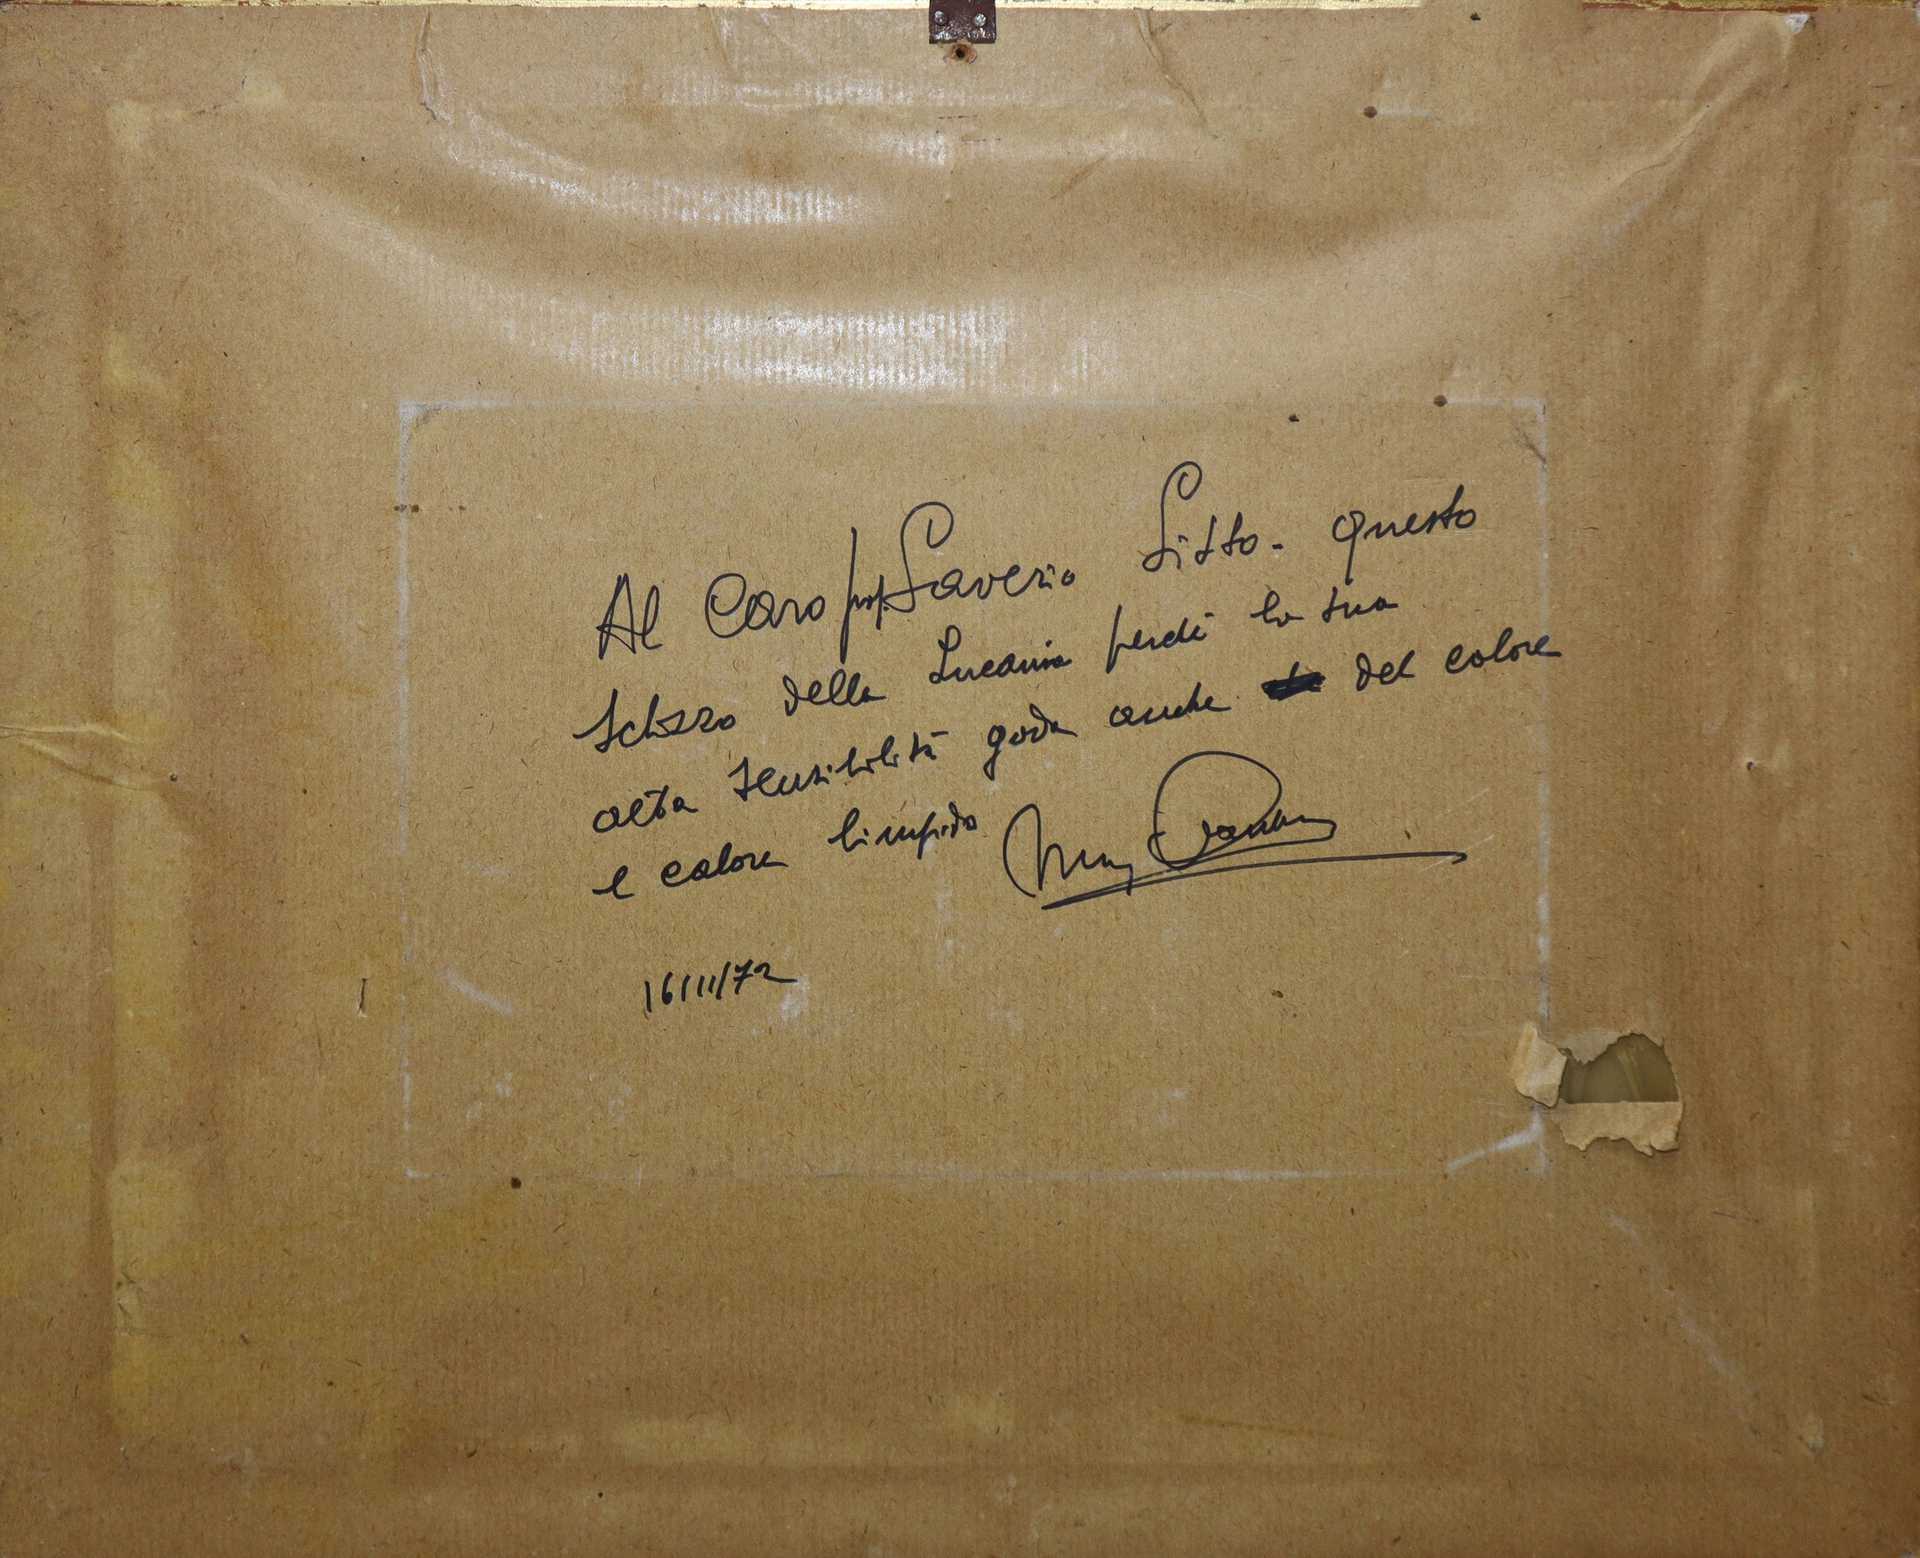 Al Caro prof. Saverio Sisto - questo
schizzo della Lucania perchè la sua
alta sensibilità goda anche del colore
e calore limpido
16/11/72